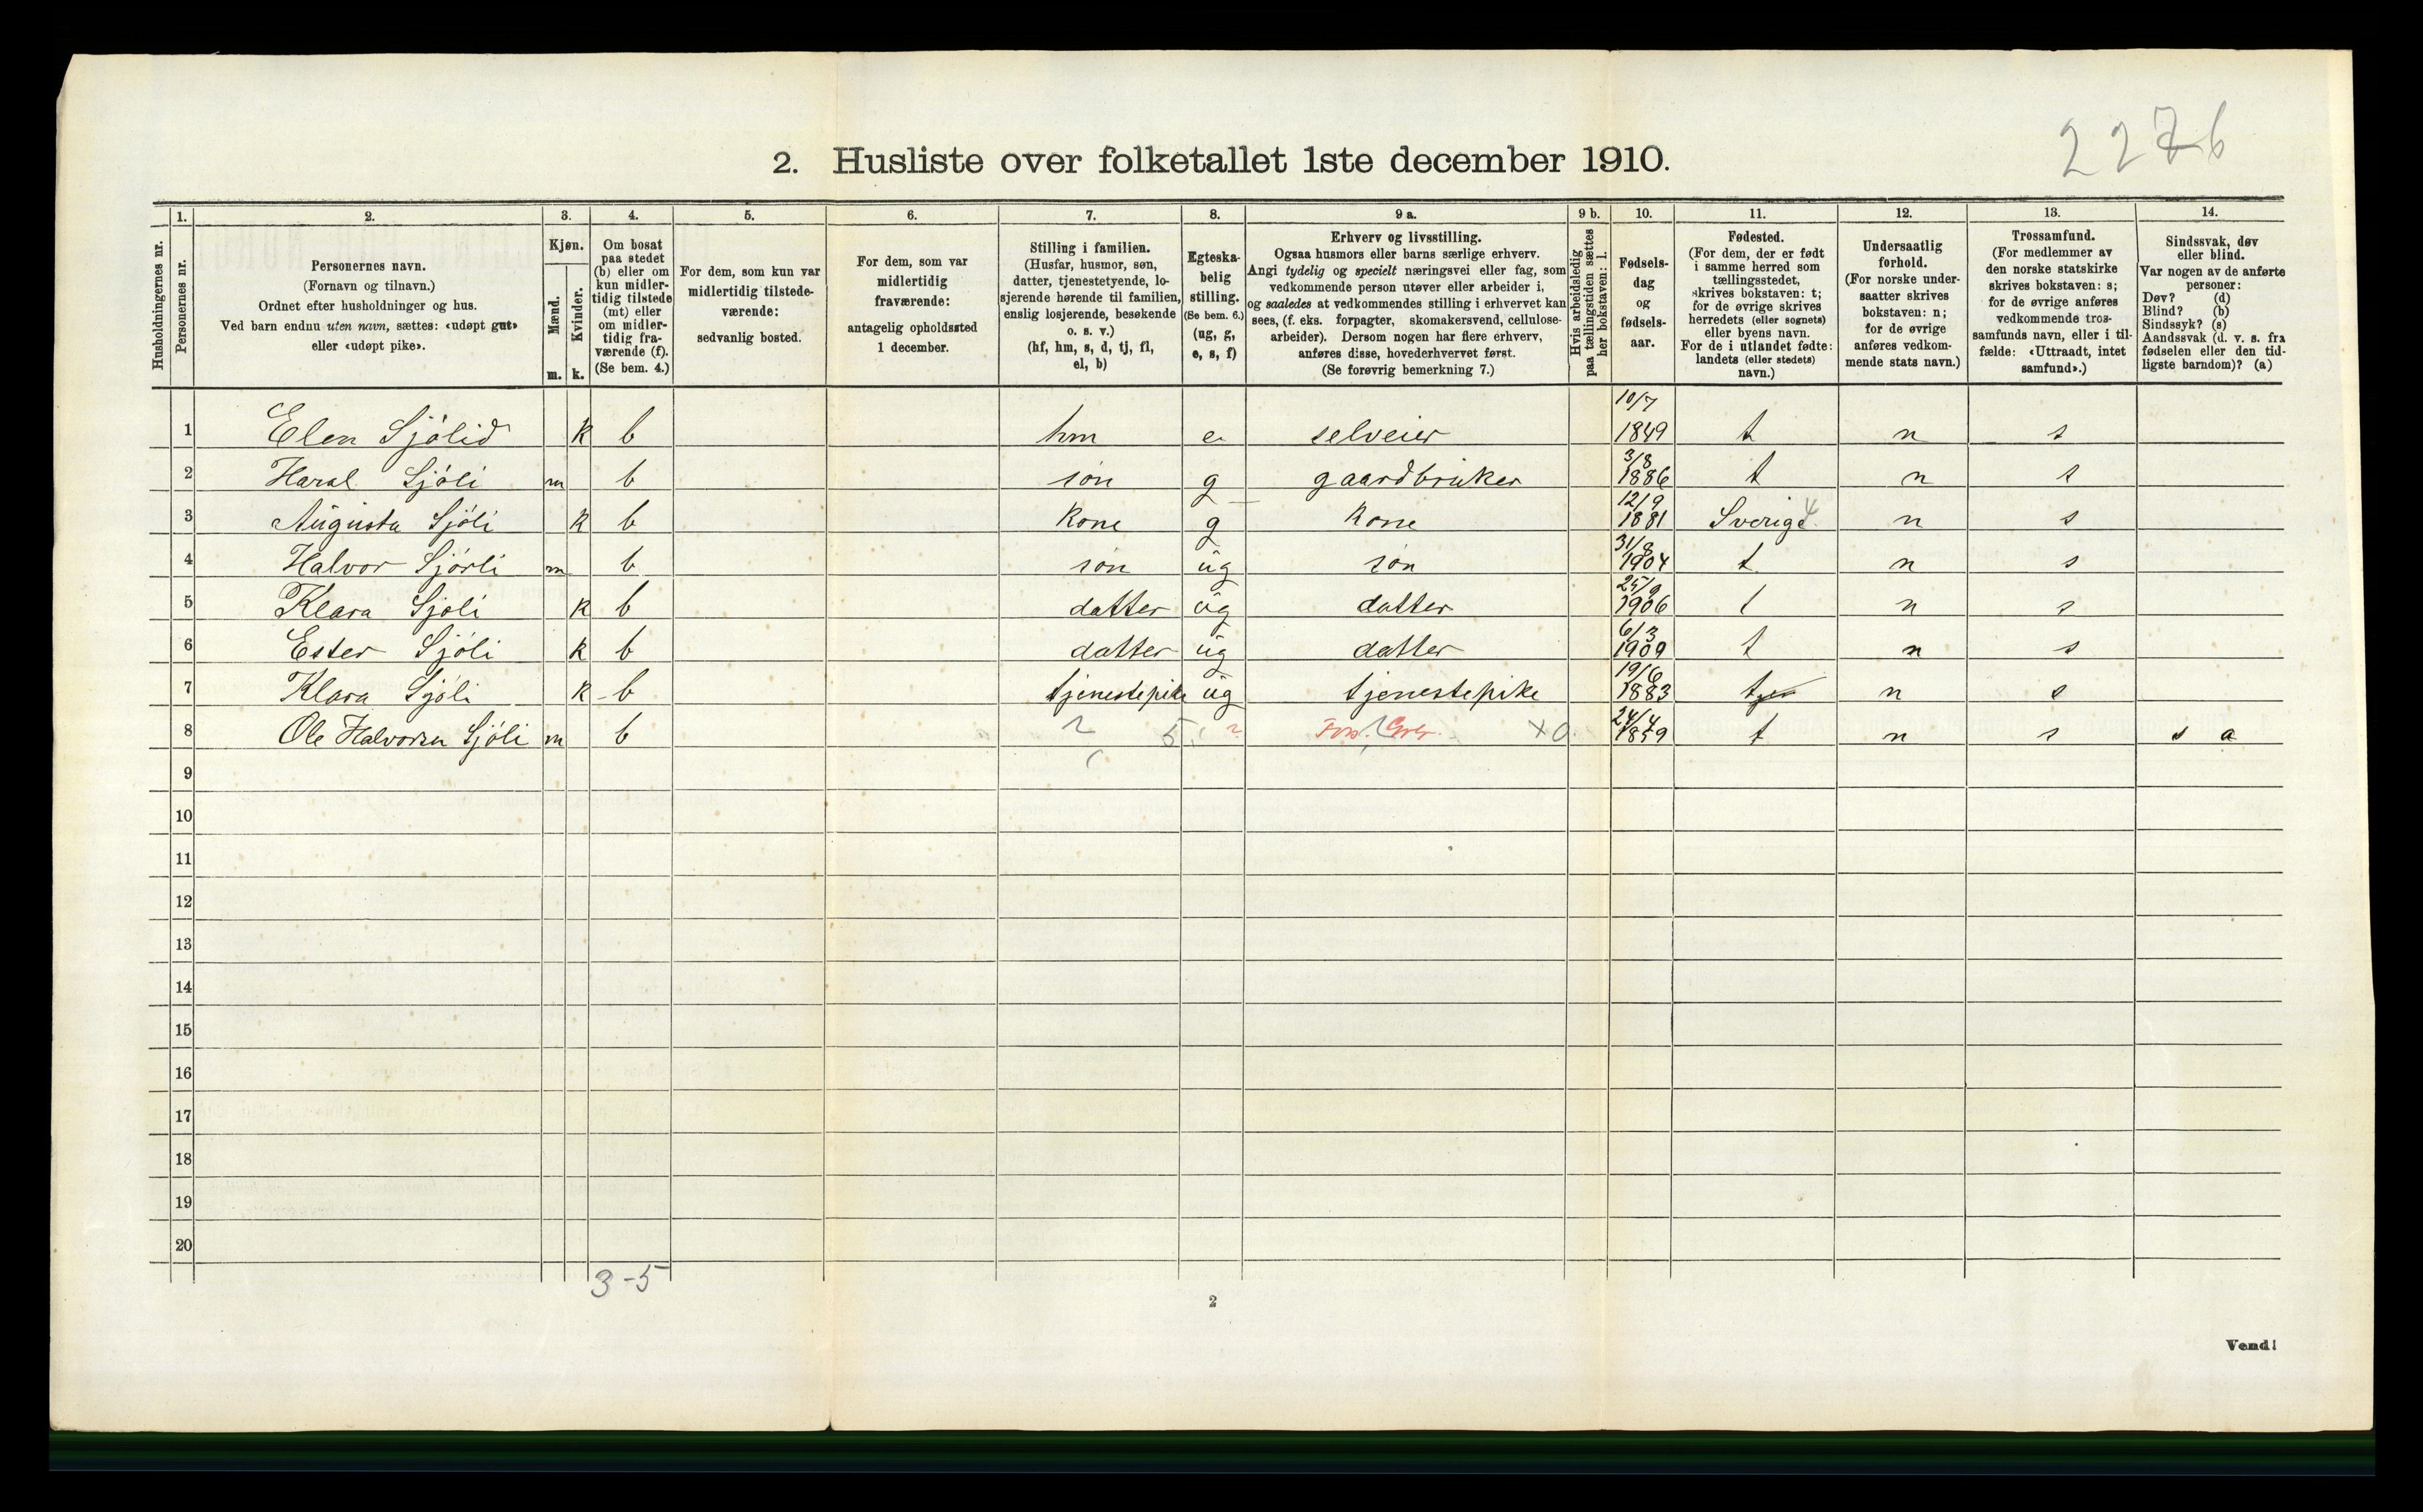 2276
2. Husliste over folketallet 1ste december 1910.
1. 2. 3. 4. 5. 6. 7. 8. 9 a. 9 b. 10. 11. 12. 13. 14.
Husholdningernes nr.
Personernes nr.
Personernes navn.
(Fornavn og tilnavn.)
Ordnet efter husholdninger og hus.
Ved barn endnu uten navn, sættes: «udøpt gut»
eller «udøpt pike».
Kjøn.
Mænd.
Kvinder.
m. k.
Om bosat
paa stedet
(b) eller om
kun midler-
tidig tilstede
(mt) eller
om midler-
tidig fra-
værende (f).
(Se bem. 4.)
For dem, som kun var
midlertidig tilstede-
værende:
sedvanlig bosted.
For dem, som var
midlertidig
fraværende:
antagelig opholdssted
1 december.
Stilling i familien.
(Husfar, husmor, søn,
datter, tjenestetyende, lo-
sjerende hørende til familien,
enslig losjerende, besøkende
o. s. v.)
(hf, hm, s, d, tj, fl,
el, b)
Egteska-
belig
stilling.
(Se bem. 6.)
(ug, g,
e, s, f)
Erhverv og livsstilling.
Ogsaa husmors eller barns særlige erhverv.
Angi tydelig og specielt næringsvei eller fag, som
vedkommende person utøver eller arbeider i,
og saaledes at vedkommendes stilling i erhvervet kan
sees, (f. eks. forpagter, skomakersvend, cellulose-
arbeider). Dersom nogen har flere erhverv,
anføres disse, hovederhvervet først.
(Se forøvrig bemerkning 7.)
Hvis arbeidsledig
paa tællingstiden sættes
her bokstaven: l.
Fødsels-
dag
og
fødsels-
aar.
Fødested.
(For dem, der er født
i samme herred som
tællingsstedet,
skrives bokstaven: t;
for de øvrige skrives
herredets (eller sognets)
eller byens navn.
For de i utlandet fødte:
landets (eller stedets)
navn.)
Undersaatlig
forhold.
(For norske under-
saatter skrives
bokstaven: n;
for de øvrige
anføres vedkom-
mende stats navn.)
Trossamfund.
(For medlemmer av
den norske statskirke
skrives bokstaven: s;
for de øvrige anføres
vedkommende tros-
samfunds navn, eller i til-
fælde: «Uttraadt, intet
samfund».)
Sindssvak, døv
eller blind.
Var nogen av de anførte
personer:
Døv? (d)
Blind? (b)
Sindssyk? (s)
Aandssvak (d. v. s. fra
fødselen eller den tid-
ligste barndom)? (a)
1 Elen Sjölid k b hm e selveier 10/7 1849 t n s
2 Haral Sjöli m b sön g gaardbruker 3/8 1886 t n s
3 Augusta Sjöli k b kone g kone 12/9 1881 Sverige 4 n s
4 Halvor Sjörli m b sön ug sön 31/8 1904 t n s
5 Klara Sjöli k b datter ug datter 25/9 1906 t n s
6 Ester Sjöli k b datter ug datter 6/3 1909 t n s
7 Klara Sjöli k b tjenestepike ug tjenestepike 19/6 1883 t n s
8 Ole Halvorsen Sjöli m b ? Fors. x0 24/4 1859 t n s s a
9
10
11
12
13
14
15
16
17
18
19
20
3-5
2
Vend!